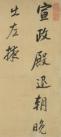 宣政殿退朝晚
出左掖